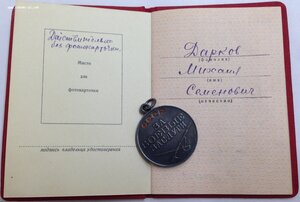 Действительно
без фотокарточки.
Место
для
фотокарточки
подпись владельца удостоверения
Дарков
(фамилия)
Михаил
(имя)
Семенович
(отчество)
СССР
ЗА
БОЕВЫЕ
ЗАСЛУГИ